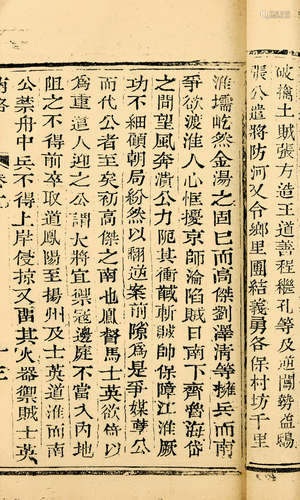 破擒土賊張方造王道善程繼孔等及道闖勢益鴟
張公遣將防河又令鄉里團結義勇各保村坊千里
淮壖屹然金湯之固已而高傑劉澤清等擁兵而南
爭欲渡淮人心恇擾京師淪陷賊日南下齊魯海岱
之間望風奔潰公力扼其衝馘斬誠帥保障江淮厥
功不細顧朝局紛然以翻逆案前隙為是爭媒孽公
而代公者至矣初高傑之南也鳳督馬士英欲倚以
為重遣人迎之公謂大將宜禦冦邊庭不當入內地
阻之不得前卒取道鳳陽至揚州及士英道淮而南
公禁舟中兵不得上岸侵掠又留其火器禦賊士英